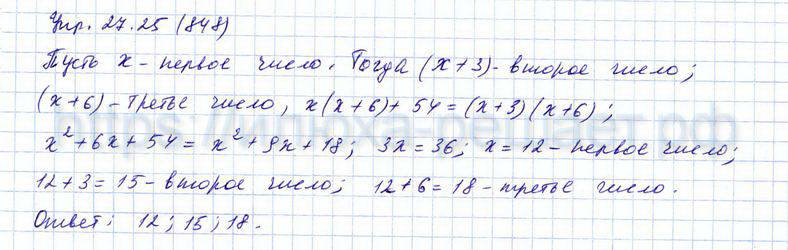 Упр. 27.25 (848)
Пусть x - первое число. Тогда (x+3) - второе число;
(x+6) - третье число, x(x+6)+54=(x+3)(x+6);
x²+6x+54=x²+9x+18; 3x=36; x=12 - первое число;
12+3=15 - второе число; 12+6=18 - третье число.
Ответ: 12; 15; 18.